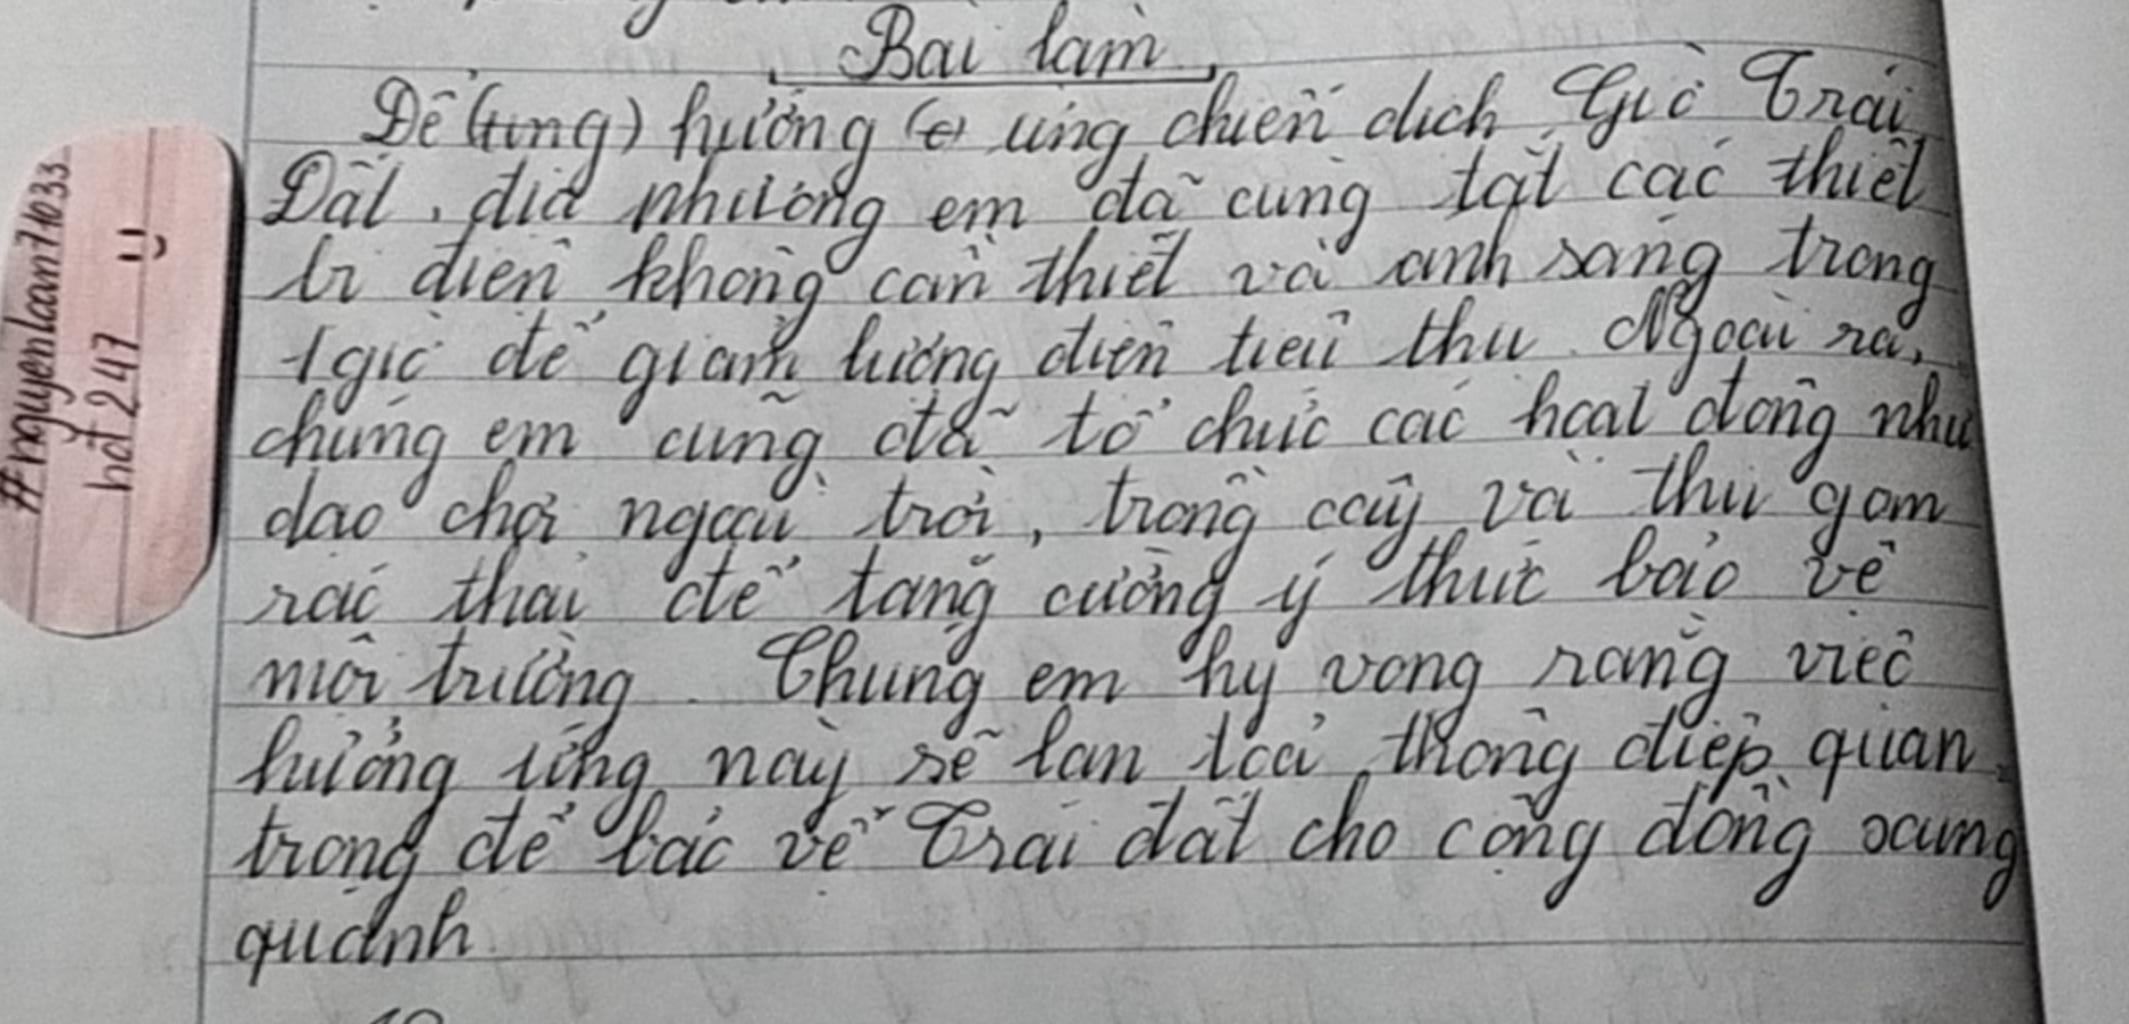 Bài làm
Để (tưng) hưởng (e) ứng chiến dịch Giờ Trái
Đất, địa phương em đã cùng tắt các thiết
bị điện không cần thiết và ánh sáng trong
1 giờ để giảm lượng điện tiêu thụ. Ngoài ra,
chúng em cũng đã tổ chức các hoạt động như
dạo chơi ngoài trời, trồng cây và thu gom
rác thải để tăng cường ý thức bảo vệ
môi trường. Chúng em hy vọng rằng việc
hưởng ứng này sẽ lan toả thông điệp quan
trọng để bảo vệ Trái đất cho cộng đồng xung
quanh
#nguyenloan71033
hdt247